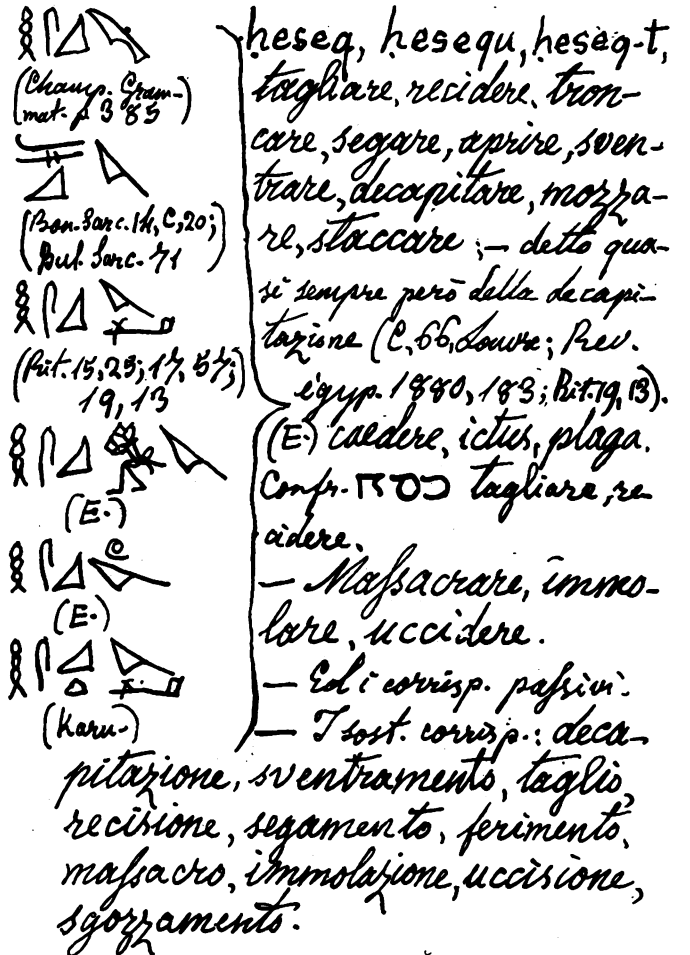 (Champ. Gram-
mat. p 385)
(Bon. Sarc. 14, C, 20;
Bul. Sarc. 71)
(Rit. 15, 23; 17, 57;
19, 13)
(E.)
(E.)
(Karn-)
ḥeseq, ḥesequ, ḥeseq-t,
tagliare, recidere, tron-
care, segare, aprire, sven-
trare, decapitare, mozza-
re, staccare ;— detto qua-
si sempre però della decapi-
tazione (C, 66, Louvre; Rev.
égyp. 1880, 183; Rit. 19, 13).
(E.) caedere, ictus, plaga.
Confr. כסח tagliare, re
cidere.
— Maſsacrare, immo-
lare, uccidere.
— Ed i corrisp. paſsivi.
— I sost. corrisp.: deca-
pitazione, sventramento, taglio,
recisione, segamento, ferimento,
maſsacro, immolazione, uccisione,
sgozzamento.